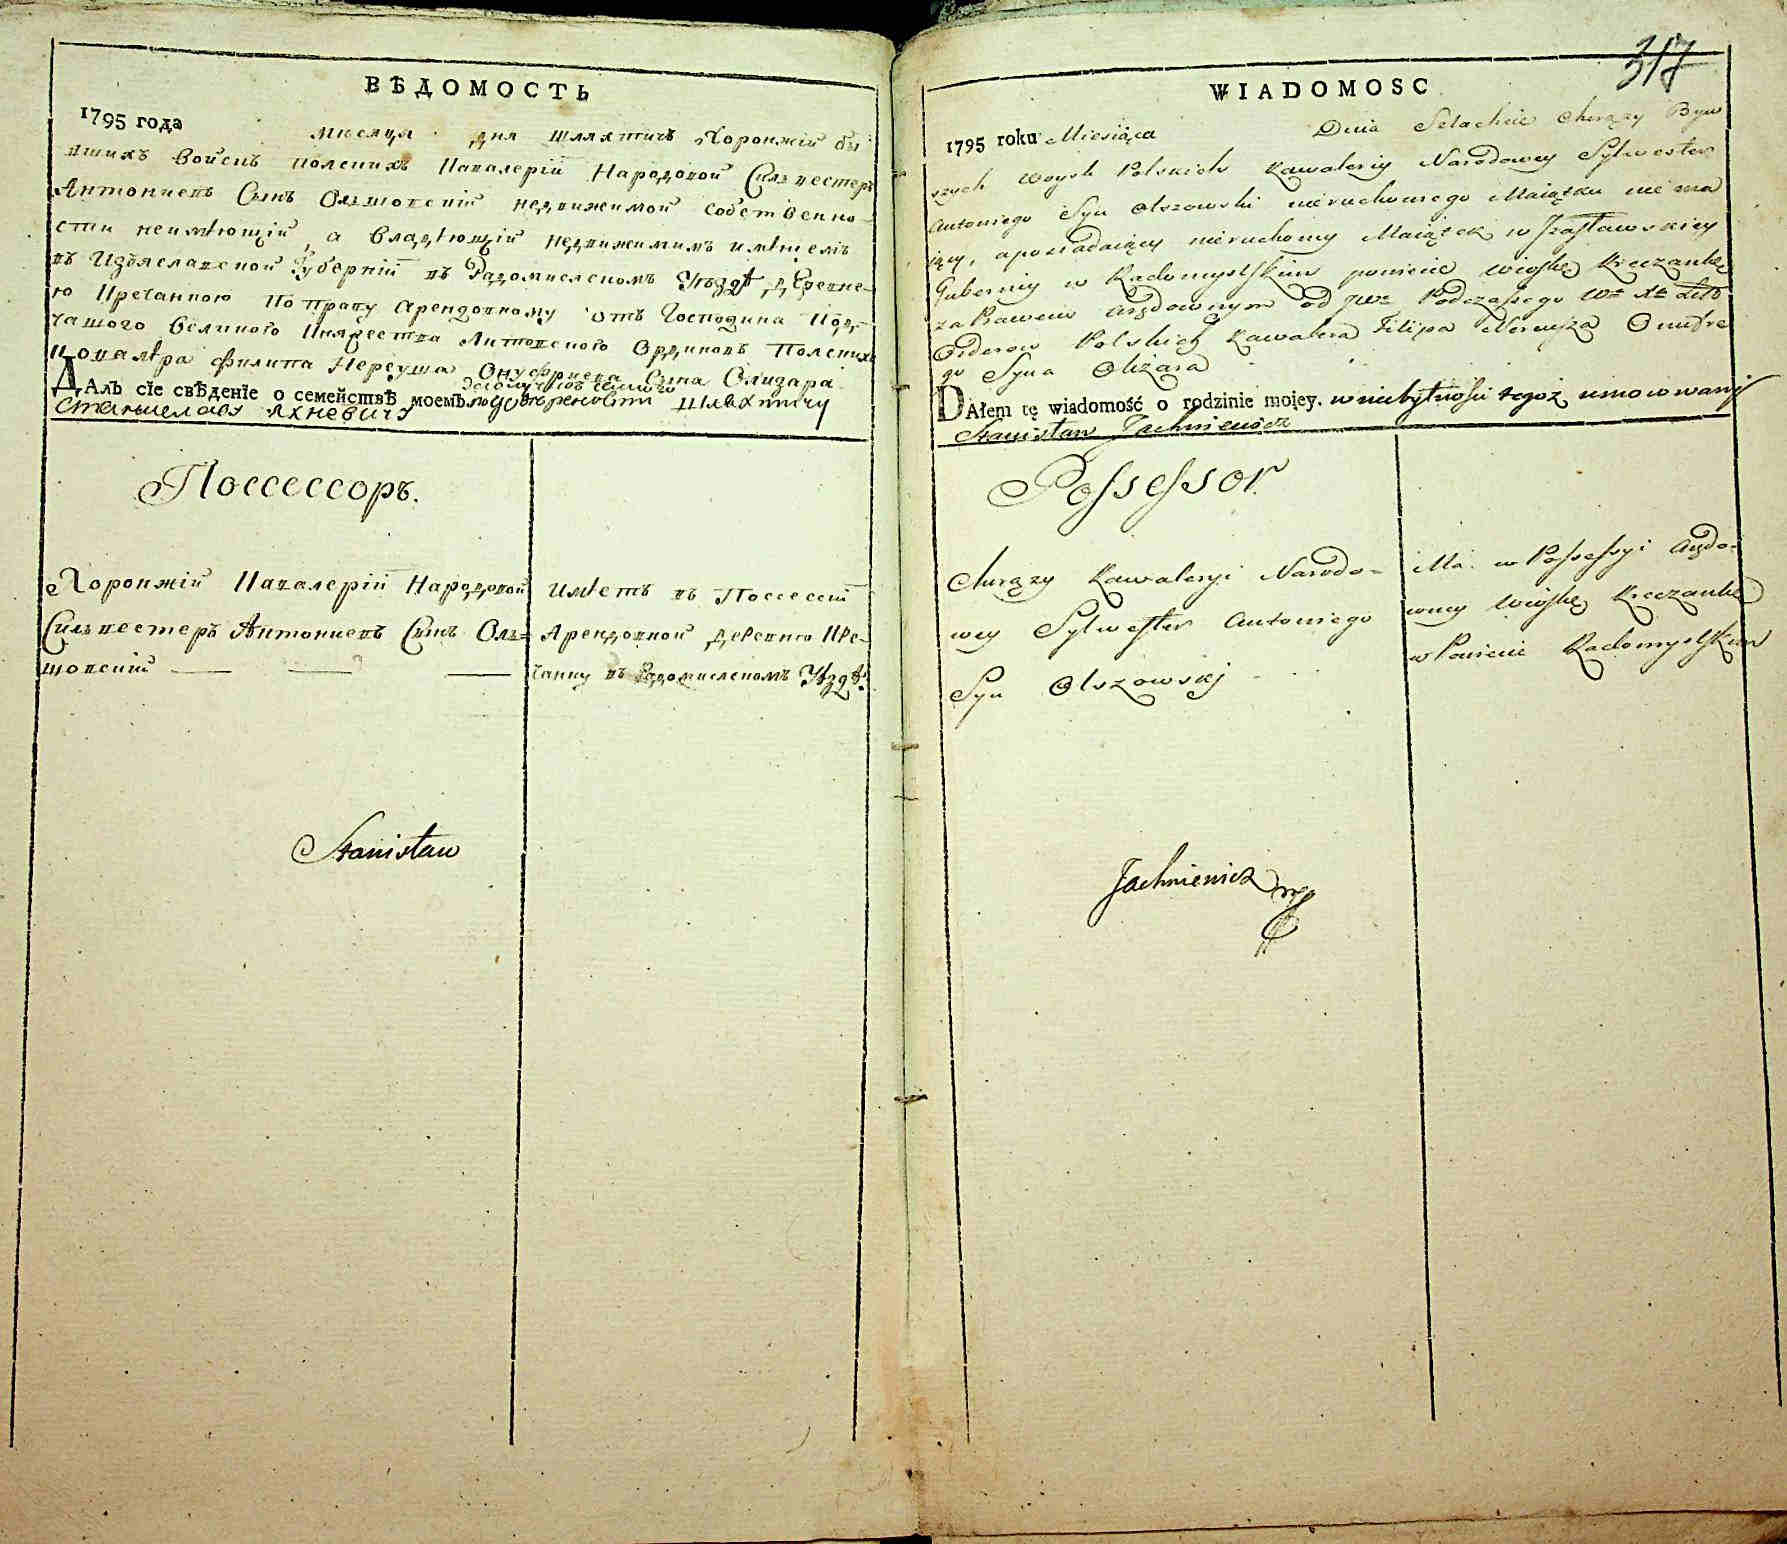 ВѢДОМОСТЬ
1795 года мѣсяца дня шляхтичъ Хоронжій бы
вшихъ войскъ полскихъ Кавалеріи Народовой Сильвестеръ
Антоніевъ Сынъ Ольшовскій недвижимой собственно-
сти неимѣющій, а владѣющій недвижимимъ имѣніемъ
въ Изъяславской Губерніи въ Радомислскомъ Уѣздѣ деревне-
ю Кречанкою по праву арендовному отъ Господина Под-
чашого великого Князества Литовского Ординовъ Полскихъ
Ковалѣра Филипа Нереуша Онуфриева Сына Олизара
ДАлъ сіе свѣденіе о семействѣ моемъ. шляхтичу
Станиславу Яхневичу
Поссессоръ.
Хоронжій Кавалеріи Народовой
Сильвестеръ Антоніевъ Сынъ Оль-
шовскій
Имѣетъ въ Поссессіи
Арендовной деревню Кре-
чанку въ Радомислскомъ Уѣздѣ.
Stanisław
317
WIADOMOSC
1795 roku Miesiąca Dnia Szlachcic Chorąży Byw
szych Woysk Polskich Kawaleriy Narodowey Sylwester
Antoniego Syn Olszowski nieruchomego Maiątku nie ma
iący, a posiadaiący nieruchomy Maiątek w Izasławskiey
Guberniy w Radomyslskim powiecie wioskę Kreczankę
za Prawem Arędownym od JWo Podczaszego Wo Xa Litto
Orderow Polskich Kawalera Filipa Nereusza Onufre
go Syna Olizara
DAłem tę wiadomość o rodzinie moiey. w niebytności tegoż umocowany
Stanisław Jachniewicz
Possessor.
Chorąży Kawaleryi Narodo-
wey Sylwester Antoniego
Syn Olszowskj
Ma w Possessyi Arędo-
wney Wioskę Kreczankę
w Powiecie Radomyslskim
Jachniewicz mp